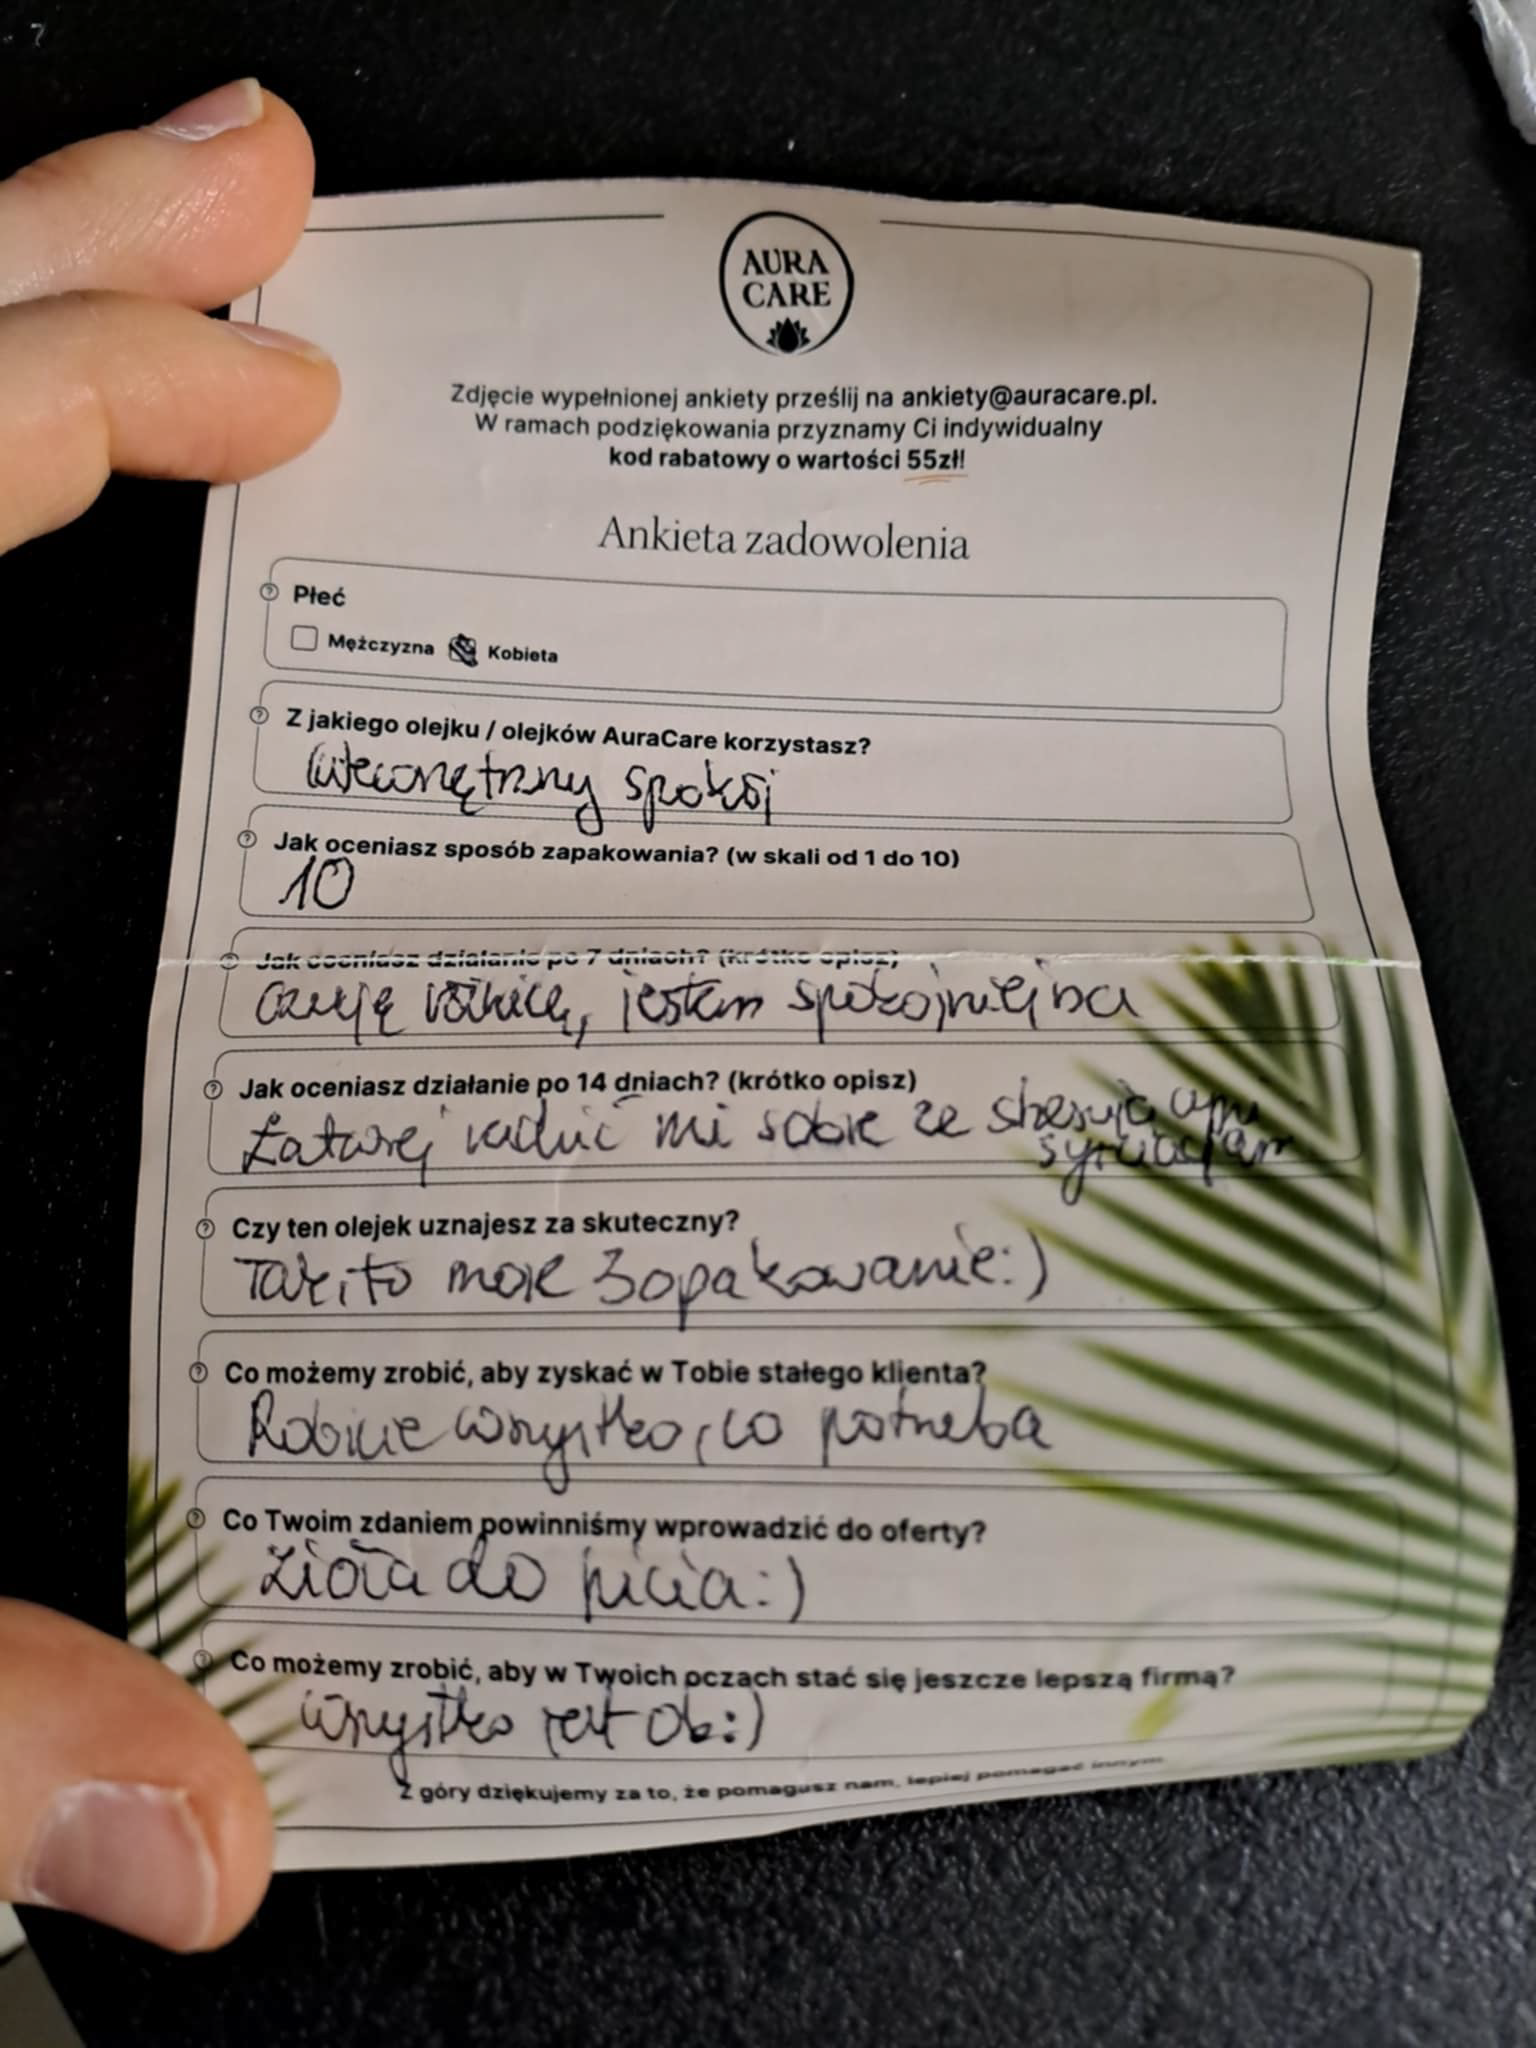 AURA
CARE
Zdjęcie wypełnionej ankiety prześlij na ankiety@auracare.pl.
W ramach podziękowania przyznamy Ci indywidualny
kod rabatowy o wartości 55zł!
Ankieta zadowolenia
Płeć
Mężczyzna Kobieta
Z jakiego olejku / olejków AuraCare korzystasz?
Wewnętrzny spokój
Jak oceniasz sposób zapakowania? (w skali od 1 do 10)
10
Jak oceniasz działanie po 7 dniach? (krótko opisz)
czuję różnicę, jestem spokojniejsza
Jak oceniasz działanie po 14 dniach? (krótko opisz)
Łatwiej radzić mi sobie ze stresującymi
sytuacjami
Czy ten olejek uznajesz za skuteczny?
Tak, to moje 3 opakowanie:)
Co możemy zrobić, aby zyskać w Tobie stałego klienta?
Robicie wszystko, co potrzeba
Co Twoim zdaniem powinniśmy wprowadzić do oferty?
Zioła do picia:)
Co możemy zrobić, aby w Twoich oczach stać się jeszcze lepszą firmą?
Wszystko jest ok:)
Z góry dziękujemy za to, że pomagasz nam, lepiej pomagać innym.